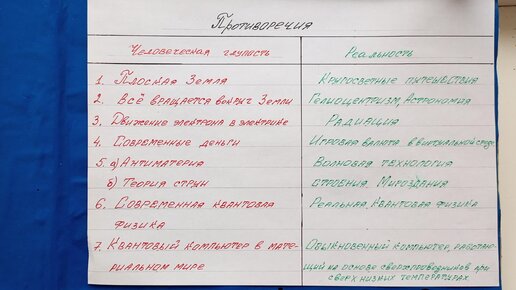 Противоречия
Человеческая глупость
Реальность
1. Плоская Земля
Кругосветные путешествия
2. Всё вращается вокруг Земли
Гелиоцентризм, Астрономия
3. Движение электрона в электрике
Радиация
4. Современные деньги
Игровая валюта в виртуальной среде
5. а) Антиматерия
Волновая технология
б) Теория струн
строения Мироздания
6. Современная квантовая
Реальная, Квантовая физика
физика
7. Квантовый компьютер в мате-
Обыкновенный компьютер, работаю-
риальном мире
щий на основе сверхпроводников при
сверх низких температурах